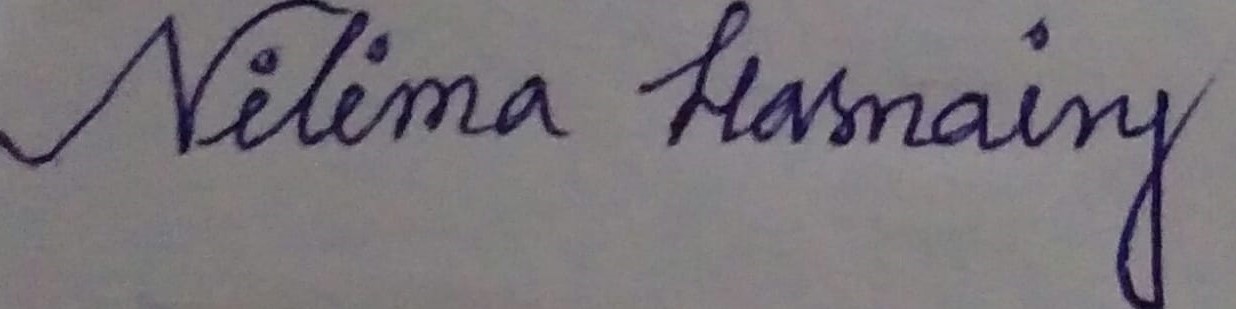 Nilima Hasnainy